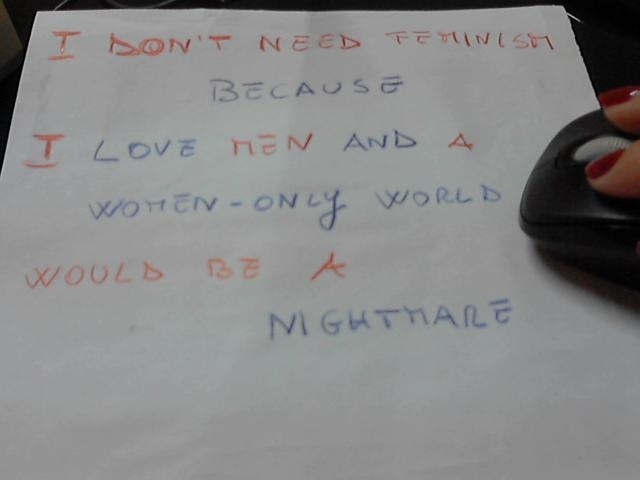 I DON'T NEED FEMINISM
BECAUSE
I LOVE MEN AND A
WOMEN-ONLY WORLD
WOULD BE A
NIGHTMARE